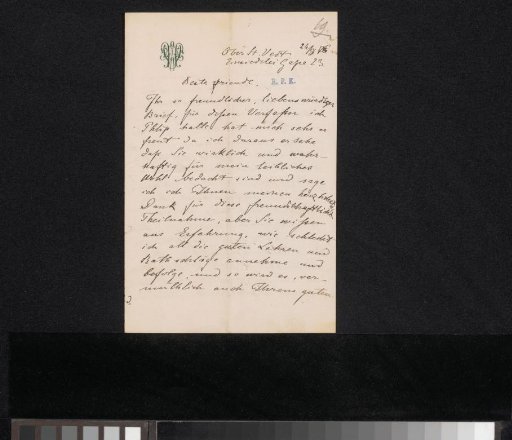 69.
Ober St. Veit
Einsiedelei Gasse 23
Beste Freunde. R.P.K.
Ihr so freundlicher, liebenswürdiger
Brief, für dessen Verfasser ich
Philip halte hat mich sehr er
freut da ich daraus ersehe
daß Sie wirklich und wahr-
haftig für mein leibliches
Wohl bedacht sind und sage
ich Ihnen meinen herzlichsten
Dank für diese freundschaftliche
Theilnahme, aber Sie wissen
aus Erfahrung, wie schlecht
ich all die guten Lehren und
Rathschläge annehme und
befolge, und so wird es, ver-
muthlich auch Ihrem guten